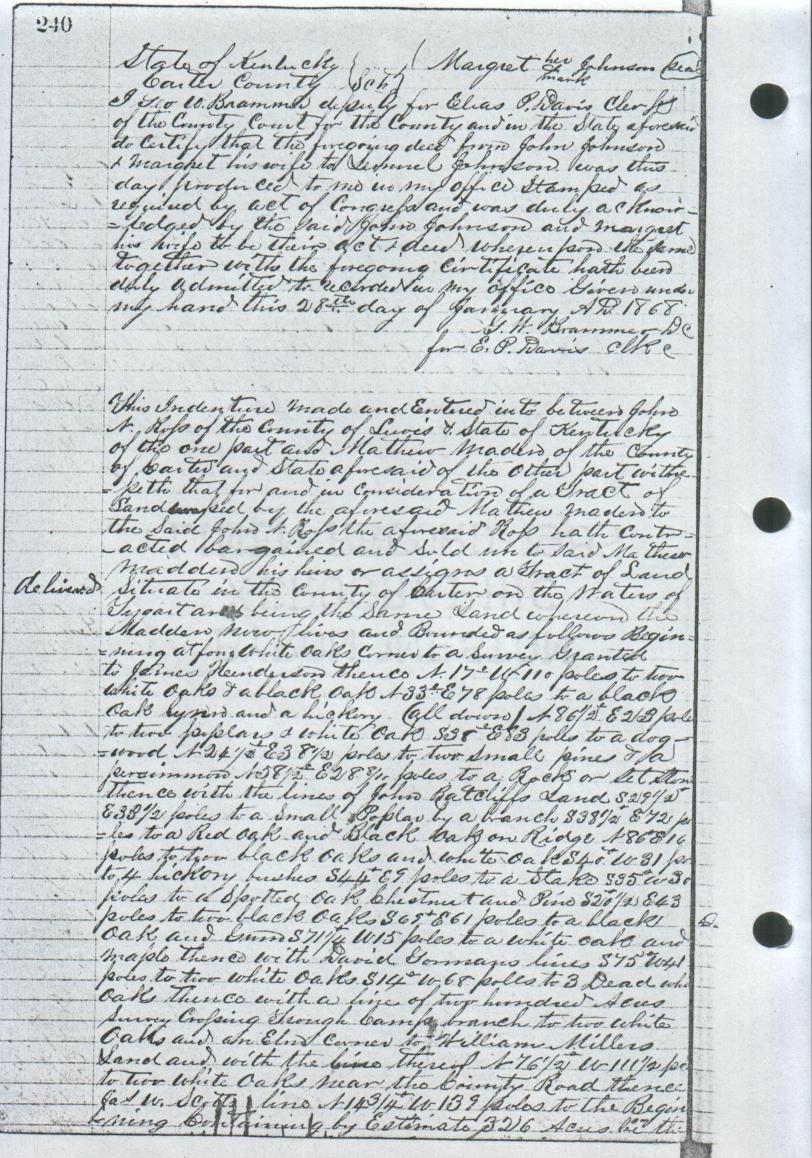 240
State of Kentucky Margret her Johnson (seal
Carter County Sct mark
I Geo W. Brammer deputy for Elias P. Davis Clerk
of the County Court for the County and in the State aforesaid
do Certify that the foregoing deed from John Johnson
& Margret his wife to Lemuel Johnson was this
day produced to me in my office Stamped as
required by act of Congress and was duly acknow=
=ledged by the said John Johnson and Margret
his wife to be their act & deed whereupon the same
together with the foregoing Certificate hath been
duly admitted to recorded in my office Given under
my hand this 28th day of January AD. 1868
G. W. Brammer DC
for E. P. Davis Clk c
This Indenture made and Entered into between John
N. Ross of the County of Lewis & State of Kentucky
of the one part and Mathew Madden of the County
of Carter and State aforesaid of the Other part witne=
=seth that for and in Consideration of a Tract of
Land by the aforesaid Mathew Madden to
the Said John N. Ross the aforesaid Ross hath Contr=
=acted bargained and Sold unto Said Mathew
Madden his heirs or assigns a Tract of Land
delivered
Situate in the County of Carter on the Waters of
Tygart and being the Same Land whereon the
Madden now lives and Bounded as follows Begin=
=ning at four White Oaks Corner to a Survey Granted
to James Henderson thence N. 17° W 110 poles to two
white Oaks & a black Oak N 33° E 78 poles to a black
Oak Lynn and a hickory (all down) N 86 1/2° E 23 pole
to two poplars & white Oak S 38° E 83 poles to a dog=
=wood N 24 1/2° E 38 1/2 poles to two Small pines & a
persimmon N 38 1/2° E 28 poles to a Rock or Set Stone
thence with the lines of John Ratcliffs Land S 29 1/2°
E 33 1/2 poles to a Small Poplar by a branch S 38 1/2° E 72 po
=les to a Red Oak and Black Oak on Ridge N 86 E 16
poles to two black Oaks and white Oak S 40° W 31 po
to 4 hickory bushes S 44° E 9 poles to a Stake S 35° W 30
poles to a Spotted Oak Chestnut and Pine S 20 1/2 E 43
poles to two black Oaks S 69° E 61 poles to a black
Oak and S 71 1/4 W 15 poles to a white Oak and
maple thence with David Gormans lines S 75° W 41
poles to two white Oaks S 14° W 68 poles to 3 Dead whi
Oaks thence with a line of two hundred Acres
Survey Crossing Trough Camp branch to two white
Oaks and an Elm corner to William Millers
Land and with the line thereof N 76 1/2° W 111 1/2 po
to two white Oaks near the County Road thence
Jas W. Scotts line N 14 3/4° W 139 poles to the Begin
=ning Containing by Estimate 326 Acres be the